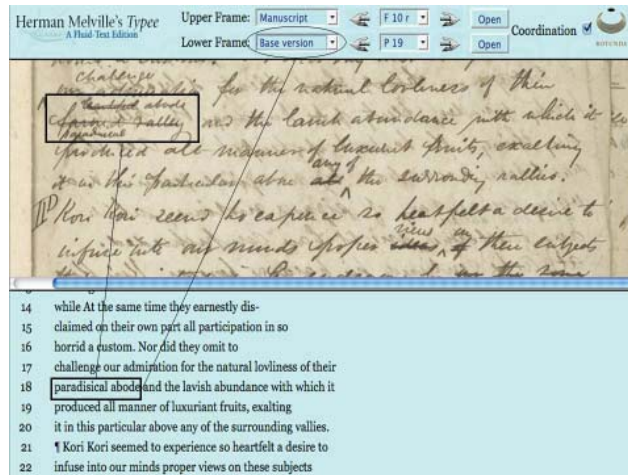 Herman Melville's Typee
A Fluid-Text Edition
Upper Frame: Manuscript F 10 r Open
Lower Frame: Base version P 19 Open
Coordination
ROTUNDA
challenge
our admiration for the natural loveliness of their
beautiful abode
and the lavish abundance with which it
paradisical
produced all manner of luxuriant fruits, exalting
any of
it in this particular above all the surrounding vallies.
Kori Kori seemed to experience so heartfelt a desire to
views on
infuse into our minds proper ideas of these subjects
14 while At the same time they earnestly dis-
15 claimed on their own part all participation in so
16 horrid a custom. Nor did they omit to
17 challenge our admiration for the natural lovliness of their
18 paradisical abode and the lavish abundance with which it
19 produced all manner of luxuriant fruits, exalting
20 it in this particular above any of the surrounding vallies.
21 ¶ Kori Kori seemed to experience so heartfelt a desire to
22 infuse into our minds proper views on these subjects